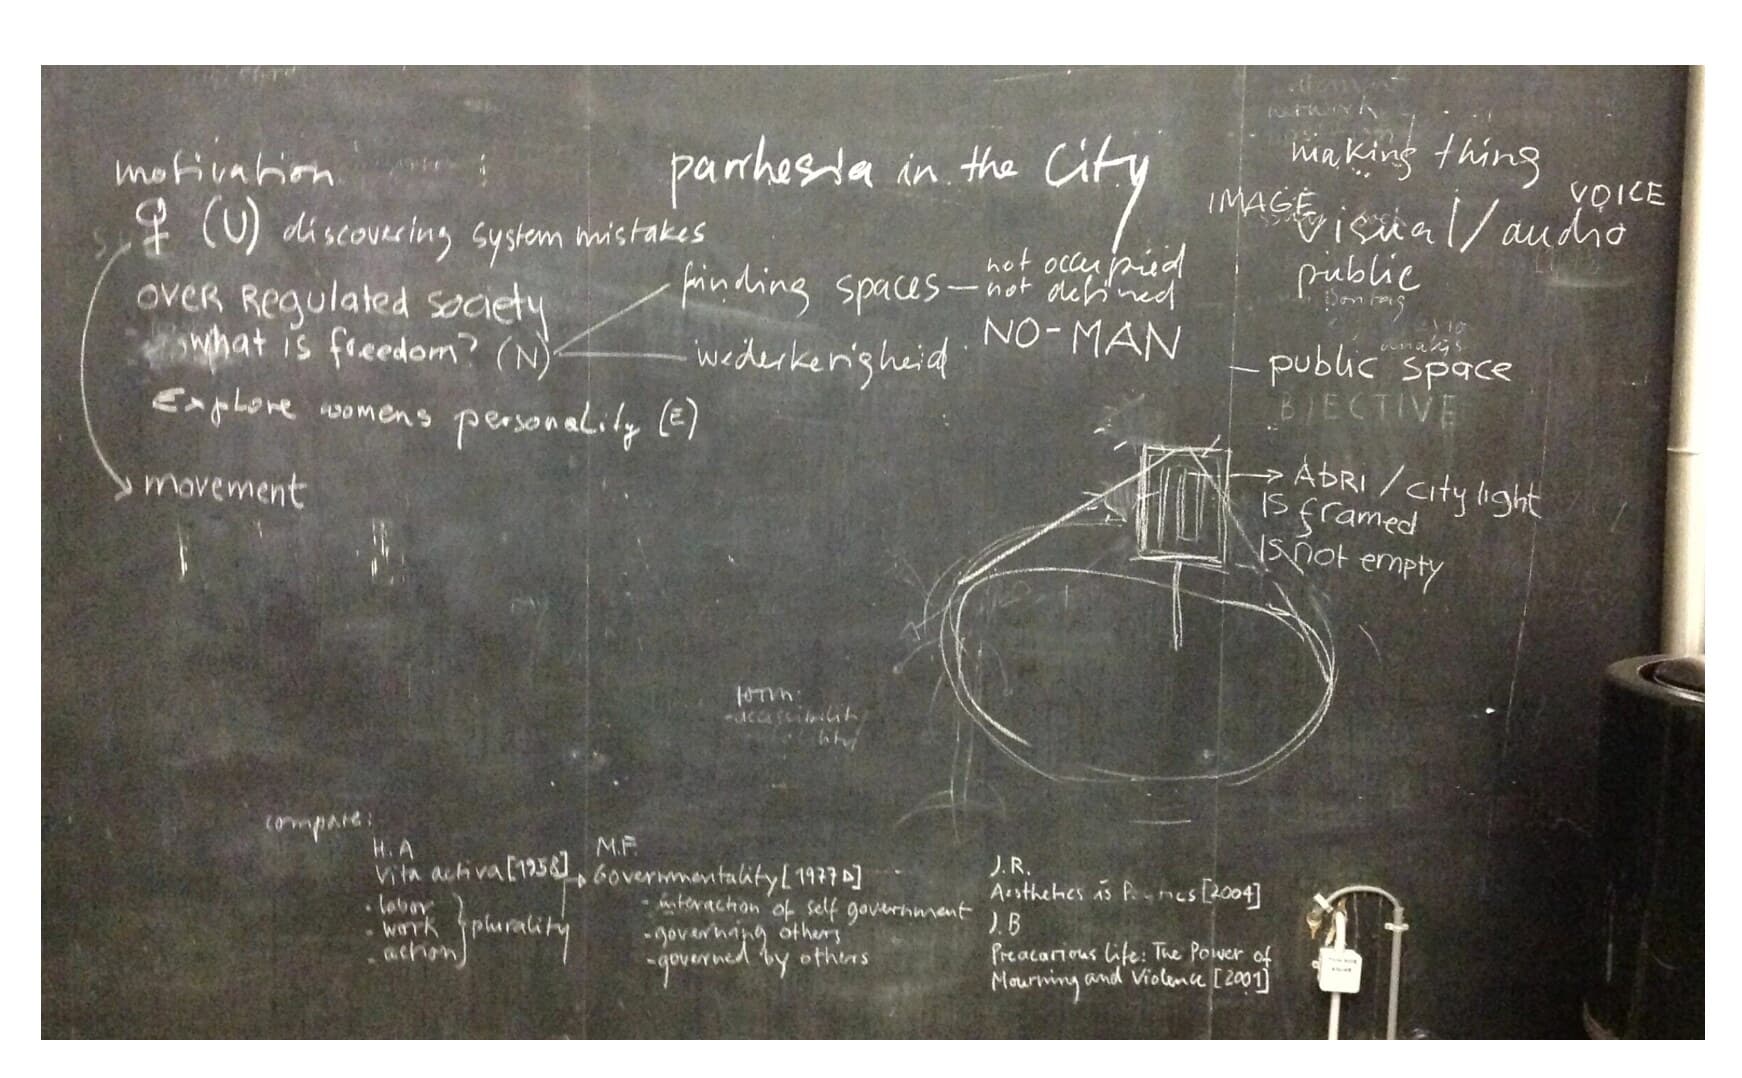 motivation
parrhesia in the City
♀ (U) discovering system mistakes
over Regulated society
what is freedom? (N)
Explore womens personality (E)
movement
finding spaces – not occupied
not defined
NO-MAN
wederkerigheid
network
making thing
IMAGE
VOICE
visual / audio
public
– public space
BJECTIVE
→ AbRI / city light
IS framed
IS not empty
form:
compare:
H.A
Vita activa [1958] →
- labor
- work
- action
plurality
M.F.
Governmentality [1977
- interaction of self government
- governing others
- governed by others
J.R.
Aesthetics is [2004]
J.B
Preacarious Life: The Power of
Mourning and Violence [2001]